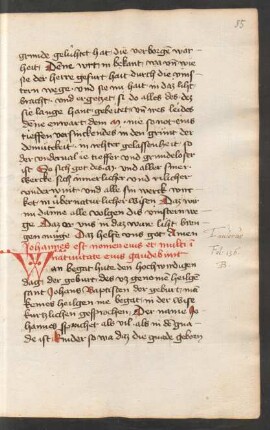 85
grunde geluhtet hat die verborge war-
heit Dene wirt in bekant wa vn wie
sie der herre gefurt hat durch die vins-
tern wege vnd sie nu hat in daz liht
bracht vnd ergetzet si do alles des dez
sie lange hant gebeitet vn irs leides
Dene enwart dem m nie so not ems
tieffen versinckendes in den grunt der
demütekeit in rehter gelassenheit so
der vnderval ie tieffer vnd grundeloser
ist So sich got des m vnd aller siner
wercke sich innerlicher vnd richlicher
vnder wint vnd alle sin werck wirc-
ket in übernatürlicher wisen Daz wir
nu dirre alle volgen die vinstern we-
ge Daz er vns in daz ware liht brin-
gen muge Daz helfe vns got Amen
Johannes est nomen eius et multi i
natiuitate eius gaudebunt
Wan begat hute den hochwirdigen
dag der geburt des vz genome heilige
sant Johans baptisten der geburt me
keines heilgen me begat in der wise
kurtzlichen gesprochen Der name Jo-
hannes sprichet als vil als in d' gna-
de ist Kinder so wa daz die gnade geborn